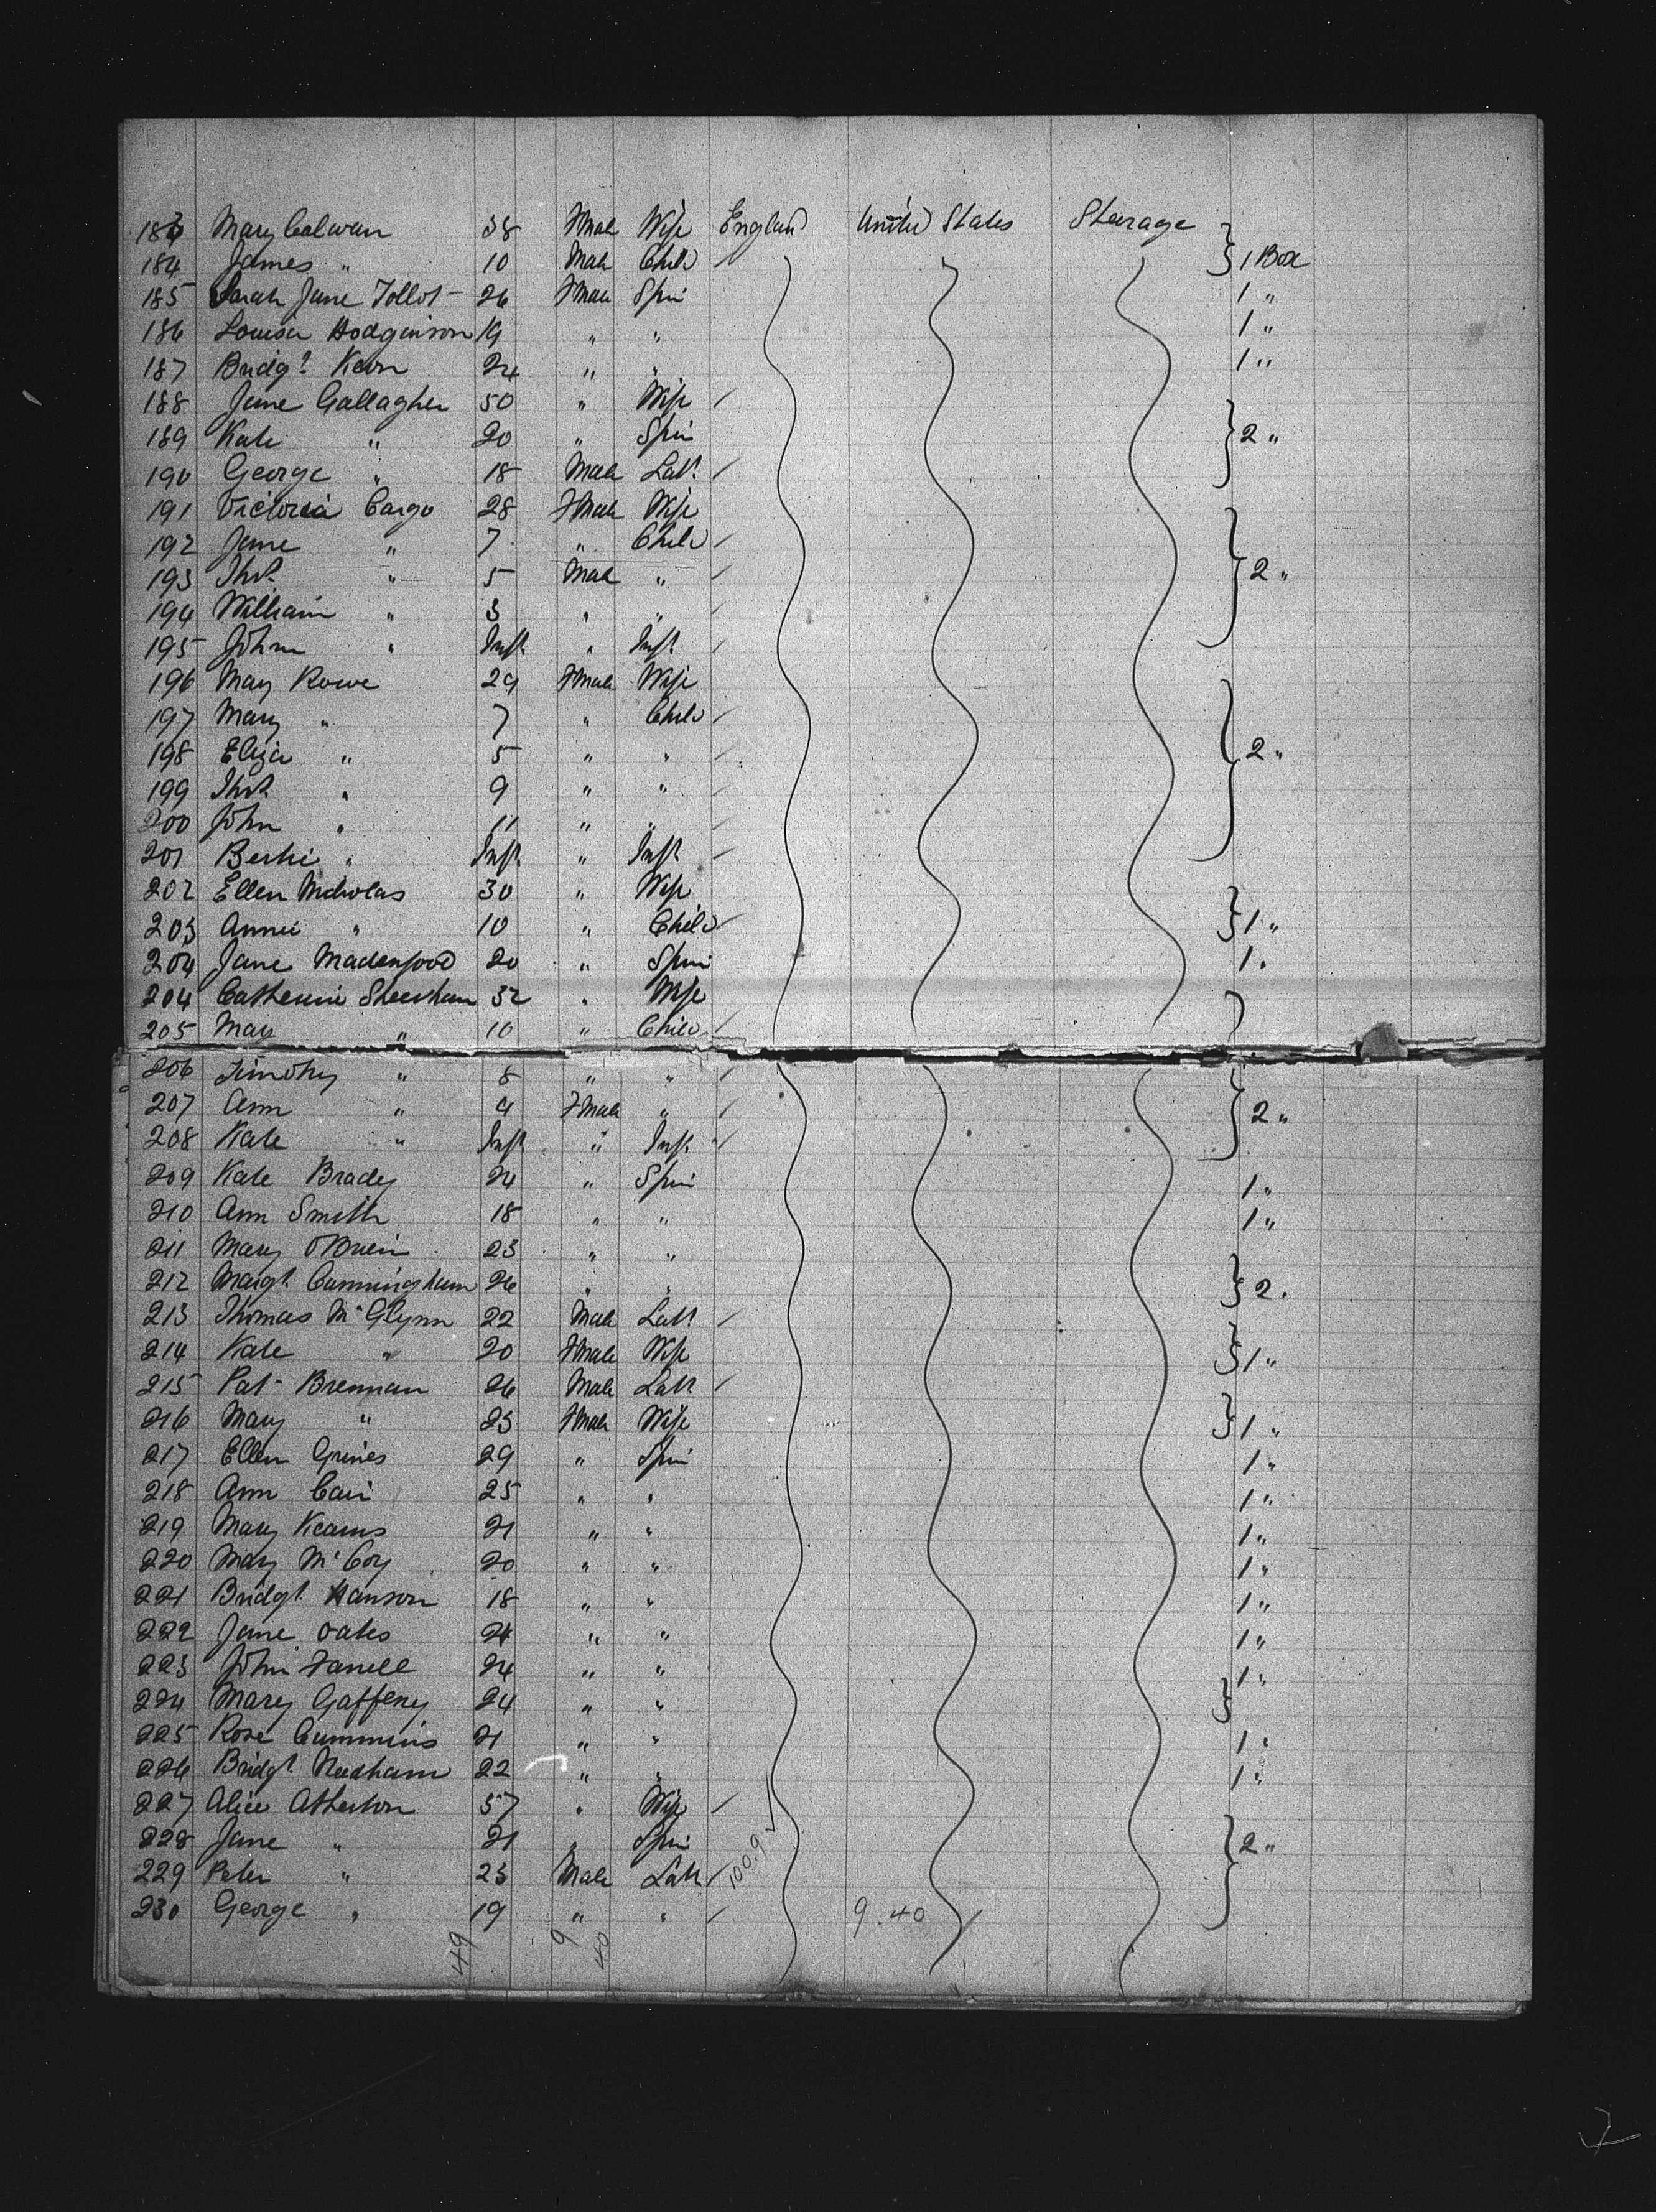 183 Mary Colwan 38 Fmale Wife England United States Steerage
184 James " 10 Male Child 1 Box
185 Sarah Jane Tollot 26 Fmale Spin 1 "
186 Louisa Hodginson 19 " " 1 "
187 Bridgt Keon 24 " " 1 "
188 Jane Gallagher 50 " Wife
189 Kate " 20 " Spin 2 "
190 George " 18 Male Labr
191 Victoria Cargo 28 Fmale Wife
192 Jane " 7 " Child
193 Thos " 5 Male " 2 "
194 William " 3 " "
195 John " Inft " Inft
196 Mary Rowe 29 Fmale Wife
197 Mary " 7 " Child
198 Eliza " 5 " " 2 "
199 Thos " 9 " "
200 John " 11 " "
201 Bertie " Inft " Inft
202 Ellen Nicholas 30 " Wife
203 Annie " 10 " Child 1 "
204 Jane 20 " Spin 1 "
204 Catherine Sheerhan 32 " Wife
205 Mary " 10 " Child
206 Timothy " 8 " "
207 Ann " 4 Fmale " 2 "
208 Kate " Inft " Inft
209 Kate Brady 24 " Spin 1 "
210 Ann Smith 18 " " 1 "
211 Mary O'Brien 23 " "
212 Margt Cunningham 26 " " 2 "
213 Thomas McGlynn 22 Male Labr
214 Kate " 20 Fmale Wife 1 "
215 Pat Brennan 26 Male Labr
216 Mary " 23 Fmale Wife 1 "
217 Ellen Grines 29 " Spin 1 "
218 Ann Cain 25 " " 1 "
219 Mary Kearns 21 " " 1 "
220 Mary McCoy 20 " " 1 "
221 Bridgt Hanson 18 " " 1 "
222 Jane Oates 24 " " 1 "
223 John Farrell 24 " " 1 "
224 Mary Gaffeny 24 " "
225 Rose Cummins 21 " " 1 "
226 Bridgt Needham 22 " " 1 "
227 Alice Atherton 57 " Wife
228 Jane " 21 " Spin 2 "
229 Peter " 23 Male Labr 100.9
230 George " 19 " " 9.40
49 9 40